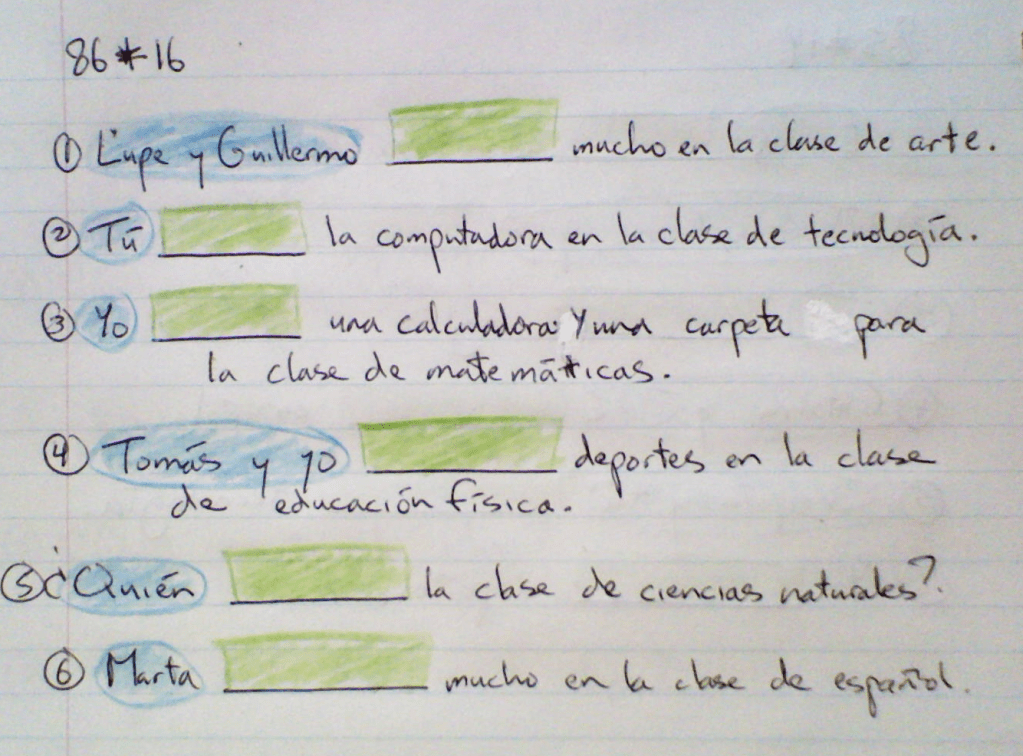 86*16
① Lupe y Guillermo ________ mucho en la clase de arte.
② Tú ________ la computadora en la clase de tecnología.
③ Yo ________ una calculadora y una carpeta para
la clase de matemáticas.
④ Tomás y yo ________ deportes en la clase
de educación física.
⑤ ¿Quién ________ la clase de ciencias naturales?
⑥ Marta ________ mucho en la clase de español.